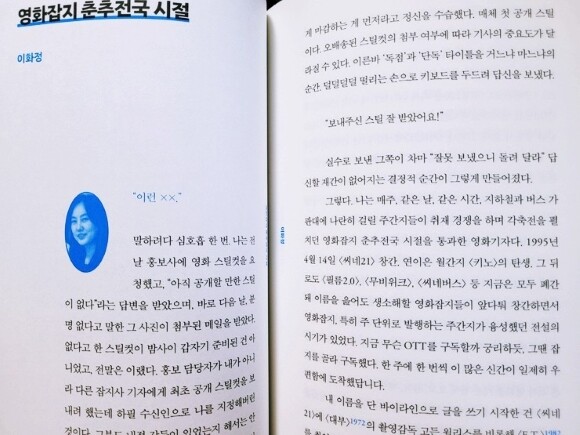 영화잡지 춘추전국 시절
이화정
“이런 ××.”
말하려다 심호흡 한 번. 나는 전
날 홍보사에 영화 스틸컷을 요
청했고, “아직 공개할 만한 스틸
이 없다”라는 답변을 받았으며, 바로 다음 날, 분
명 없다고 말한 그 사진이 첨부된 메일을 받았다.
없다고 한 스틸컷이 밤사이 갑자기 준비된 건 아
니었고, 전말은 이랬다. 홍보 담당자가 내가 아니
라 다른 잡지사 기자에게 최초 공개 스틸컷을 보
내려 했는데 하필 수신인으로 나를 지정해버린
것이다. 그쪽도 내적 갈등이 있었는지 해서는 안
게 마감하는 게 먼저라고 정신을 수습했다. 매체 첫 공개 스틸
이다. 오배송된 스틸컷의 첨부 여부에 따라 기사의 중요도가 달
라질 수 있다. 이른바 ‘독점’과 ‘단독’ 타이틀을 거느냐 마느냐의
순간. 덜덜덜덜 떨리는 손으로 키보드를 두드려 답신을 보냈다.
“보내주신 스틸 잘 받았어요!”
실수로 보낸 그쪽이 차마 “잘못 보냈으니 돌려 달라” 답
신할 재간이 없어지는 결정적 순간이 그렇게 만들어졌다.
그렇다. 나는 매주, 같은 날, 같은 시간, 지하철과 버스 가
판대에 나란히 걸릴 주간지들이 취재 경쟁을 하며 각축전을 펼
치던 영화잡지 춘추전국 시절을 통과한 영화기자다. 1995년
4월 14일 《씨네21》 창간, 연이은 월간지 《키노》의 탄생, 그 뒤
로도 《필름2.0》, 《무비위크》, 《씨네버스》 등 지금은 모두 폐간
돼 이름을 읊어도 생소해할 영화잡지들이 앞다퉈 창간하면서
영화잡지, 특히 주 단위로 발행하는 주간지가 융성했던 전설의
시기가 있었다. 지금 무슨 OTT를 구독할까 궁리하듯, 그땐 잡
지를 골라 구독했다. 한 주에 한 번씩 이 많은 신간이 일제히 우
편함에 도착했답니다.
내 이름을 단 바이라인으로 글을 쓰기 시작한 건 《씨네
21》에 〈대부〉1972의 촬영감독 고든 윌리스를 비롯해 〈E.T.〉1982